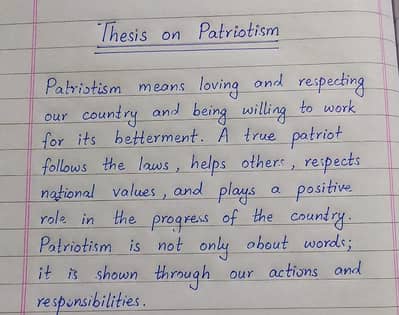 Thesis on Patriotism
Patriotism means loving and respecting
our country and being willing to work
for its betterment. A true patriot
follows the laws, helps others, respects
national values, and plays a positive
role in the progress of the country.
Patriotism is not only about words;
it is shown through our actions and
responsibilities.